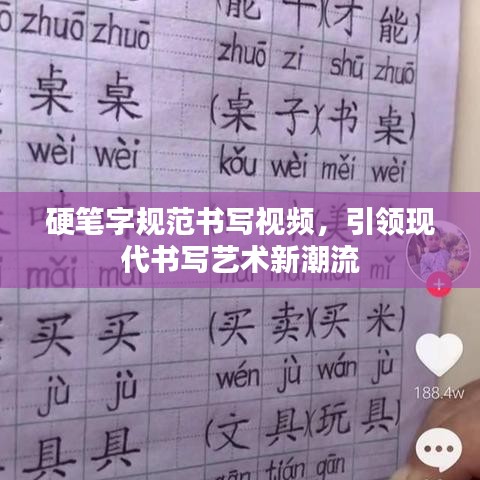 能 干)(才 能)
zhuō zhuō
zhuō zi shū zhuō
桌 桌 (桌 子)(书 桌)
wèi wèi kǒu wèi měi wèi
硬笔字规范书写视频，引领现
代书写艺术新潮流
mǎi mǎi
买 买 (买 卖)(买 米)
jù jù wén jù wán jù
188.4w
具 具 (文 具)(玩 具)
gān tián gān